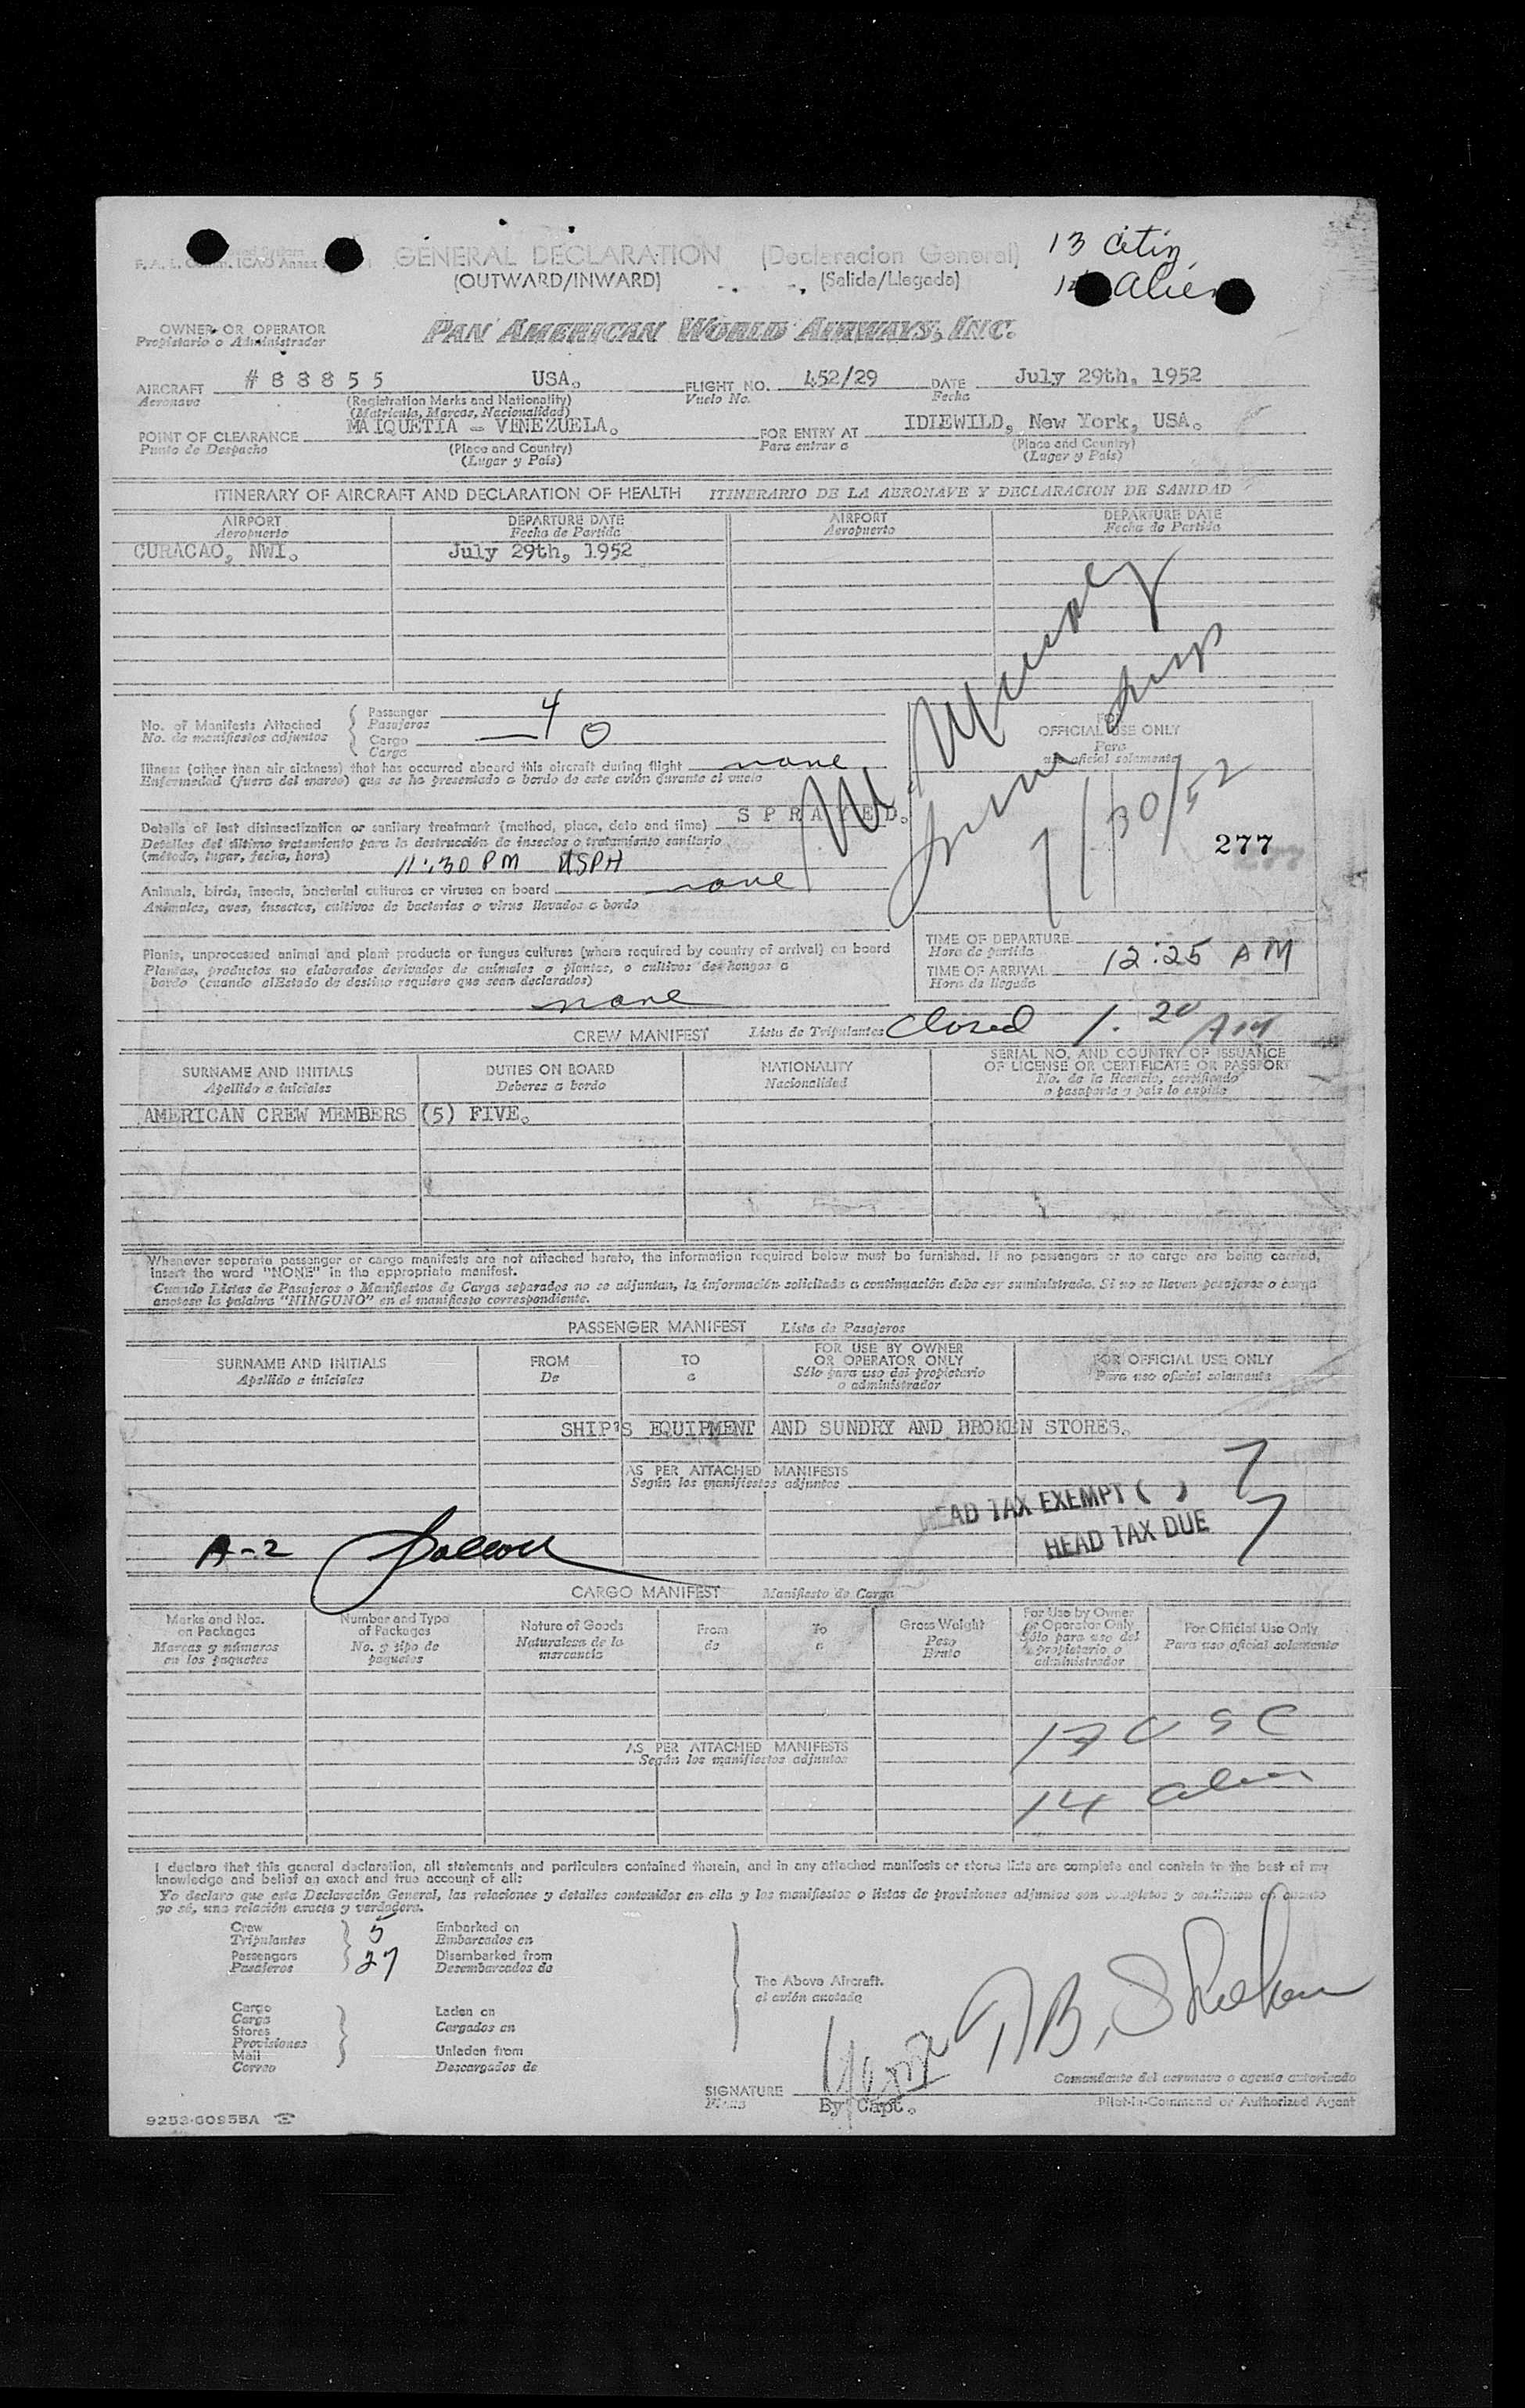 GENERAL DECLARATION (Declaracion General)
(OUTWARD/INWARD) (Salida/Llegada)
13 citiz
Alien
OWNER OR OPERATOR
Propietario o Administrador
PAN AMERICAN WORLD AIRWAYS, INC.
AIRCRAFT # 8 8 8 5 5 USA. FLIGHT NO. 452/29 DATE July 29th, 1952
Aeronave (Registration Marks and Nationality) Vuelo No. Fecha
(Matricula, Marcas, Nacionalidad)
POINT OF CLEARANCE MAIQUETIA - VENEZUELA. FOR ENTRY AT IDIEWILD, New York, USA.
Punto de Despacho (Place and Country) Para entrar a (Place and Country)
(Lugar y País) (Lugar y País)
ITINERARY OF AIRCRAFT AND DECLARATION OF HEALTH ITINERARIO DE LA AERONAVE Y DECLARACION DE SANIDAD
AIRPORT DEPARTURE DATE AIRPORT DEPARTURE DATE
Aeropuerto Fecha de Partida Aeropuerto Fecha de Partida
CURACAO, NWI. July 29th, 1952
No. of Manifests Attached
No. de manifiestos adjuntos
Passenger 4
Pasajeros
Cargo 0
Carga
FOR
OFFICIAL USE ONLY
Para
uso oficial solamente
7/30/52
277
Illness (other than air sickness) that has occurred aboard this aircraft during flight none
Enfermedad (fuera del mareo) que se ha presentado a bordo de este avión durante el vuelo
Details of last disinsectization or sanitary treatment (method, place, date and time) S P R A Y E D.
Detalles del último tratamiento para la destrucción de insectos o tratamiento sanitario
(método, lugar, fecha, hora) 11:30 PM USPH
Animals, birds, insects, bacterial cultures or viruses on board none
Animales, aves, insectos, cultivos de bacterias o virus llevados a bordo
Plants, unprocessed animal and plant products or fungus cultures (where required by country of arrival) on board
Plantas, productos no elaborados derivados de animales o plantas, o cultivos de hongos a
bordo (cuando el Estado de destino requiere que sean declarados)
none
TIME OF DEPARTURE
Hora de partida
TIME OF ARRIVAL 12:25 AM
Hora de llegada
CREW MANIFEST Lista de Tripulantes Closed 1.20 AM
SURNAME AND INITIALS DUTIES ON BOARD NATIONALITY SERIAL NO. AND COUNTRY OF ISSUANCE OF LICENSE OR CERTIFICATE OR PASSPORT
Apellido e iniciales Deberes a bordo Nacionalidad No. de la licencia, certificado o pasaporte y país lo expide
AMERICAN CREW MEMBERS (5) FIVE.
Whenever separate passenger or cargo manifests are not attached hereto, the information required below must be furnished. If no passengers or no cargo are being carried,
insert the word "NONE" in the appropriate manifest.
Cuando Listas de Pasajeros o Manifiestos de Carga separados no se adjuntan, la información solicitada a continuación debe ser suministrada. Si no se llevan pasajeros o carga
anotese la palabra "NINGUNO" en el manifiesto correspondiente.
PASSENGER MANIFEST Lista de Pasajeros
SURNAME AND INITIALS FROM TO FOR USE BY OWNER OR OPERATOR ONLY FOR OFFICIAL USE ONLY
Apellido e iniciales De a Sólo para uso del propietario o administrador Para uso oficial solamente
SHIP'S EQUIPMENT AND SUNDRY AND BROKEN STORES.
AS PER ATTACHED MANIFESTS
Según los manifiestos adjuntos
HEAD TAX EXEMPT ( ) 7
HEAD TAX DUE 7
A-2
CARGO MANIFEST Manifiesto de Carga
Marks and Nos. on Packages Number and Type of Packages Nature of Goods From To Gross Weight For Use by Owner or Operator Only For Official Use Only
Marcas y números en los paquetes No. y tipo de paquetes Naturaleza de la mercancía de a Peso Bruto Sólo para uso del propietario o administrador Para uso oficial solamente
13 USC
AS PER ATTACHED MANIFESTS
Según los manifiestos adjuntos
14 alien
I declare that this general declaration, all statements and particulars contained therein, and in any attached manifests or stores lists are complete and contain to the best of my
knowledge and belief an exact and true account of all:
Yo declaro que esta Declaración General, las relaciones y detalles contenidos en ella y los manifiestos o listas de provisiones adjuntos son completos y contienen en cuanto
yo sé, una relación exacta y verdadera.
Crew 5 Embarked on
Tripulantes Embarcados en
Passengers 27 Disembarked from
Pasajeros Desembarcados de
The Above Aircraft.
el avión anotado
Cargo Laden on
Carga Cargados en
Stores
Provisiones
Mail Unladen from
Correo Descargados de
SIGNATURE
Firma By Capt.
Comandante del aeronave o agente autorizado
Pilot-in-Command or Authorized Agent
9253-G0955A